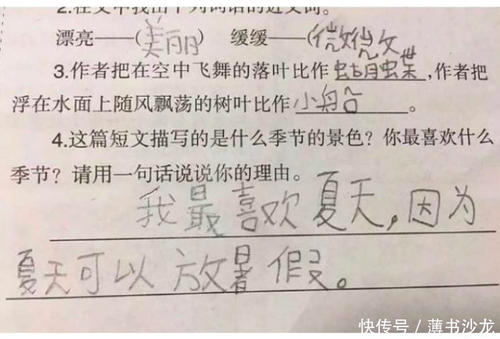 2.在文中找出下列词语的近义词。
漂亮——(美丽) 缓缓——(微微)
3.作者把在空中飞舞的落叶比作蝴蝶,作者把
浮在水面上随风飘荡的树叶比作小船。
4.这篇短文描写的是什么季节的景色？你最喜欢什么
季节？请用一句话说说你的理由。
我最喜欢夏天,因为
夏天可以放暑假。
快传号／薄书沙龙